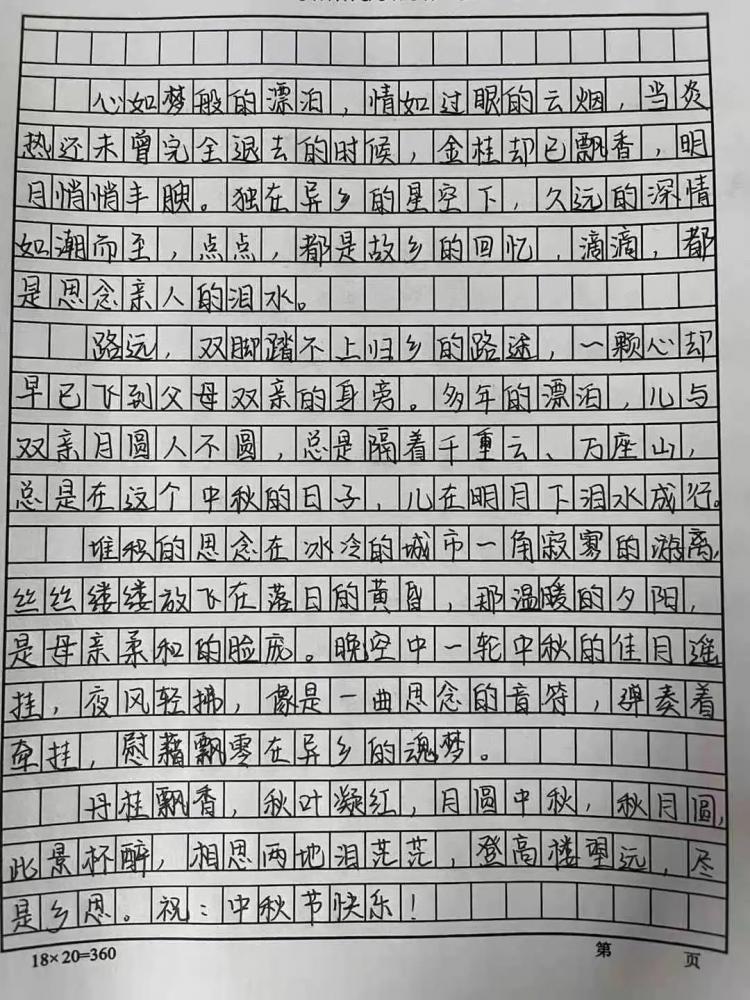 心如梦般的漂泊，情如过眼的云烟，当炎
热还未曾完全退去的时候，金桂却已飘香，明
月悄悄丰腴。独在异乡的星空下，久远的深情
如潮而至，点点，都是故乡的回忆，滴滴，都
是思念亲人的泪水。
路远，双脚踏不上归乡的路途，一颗心却
早已飞到父母双亲的身旁。多年的漂泊，儿与
双亲月圆人不圆，总是隔着千重云、万座山，
总是在这个中秋的日子，儿在明月下泪水成行。
堆积的思念在冰冷的城市一角寂寞的游离，
丝丝缕缕放飞在落日的黄昏，那温暖的夕阳，
是母亲柔和的脸庞。晚空中一轮中秋的佳月遥
挂，夜风轻拂，像是一曲思念的音符，弹奏着
牵挂，慰藉飘零在异乡的魂梦。
丹桂飘香，秋叶凝红，月圆中秋，秋月圆，
此景杯醉，相思两地泪茫茫，登高楼望远，尽
是乡思。祝：中秋节快乐！
18×20=360 第 页